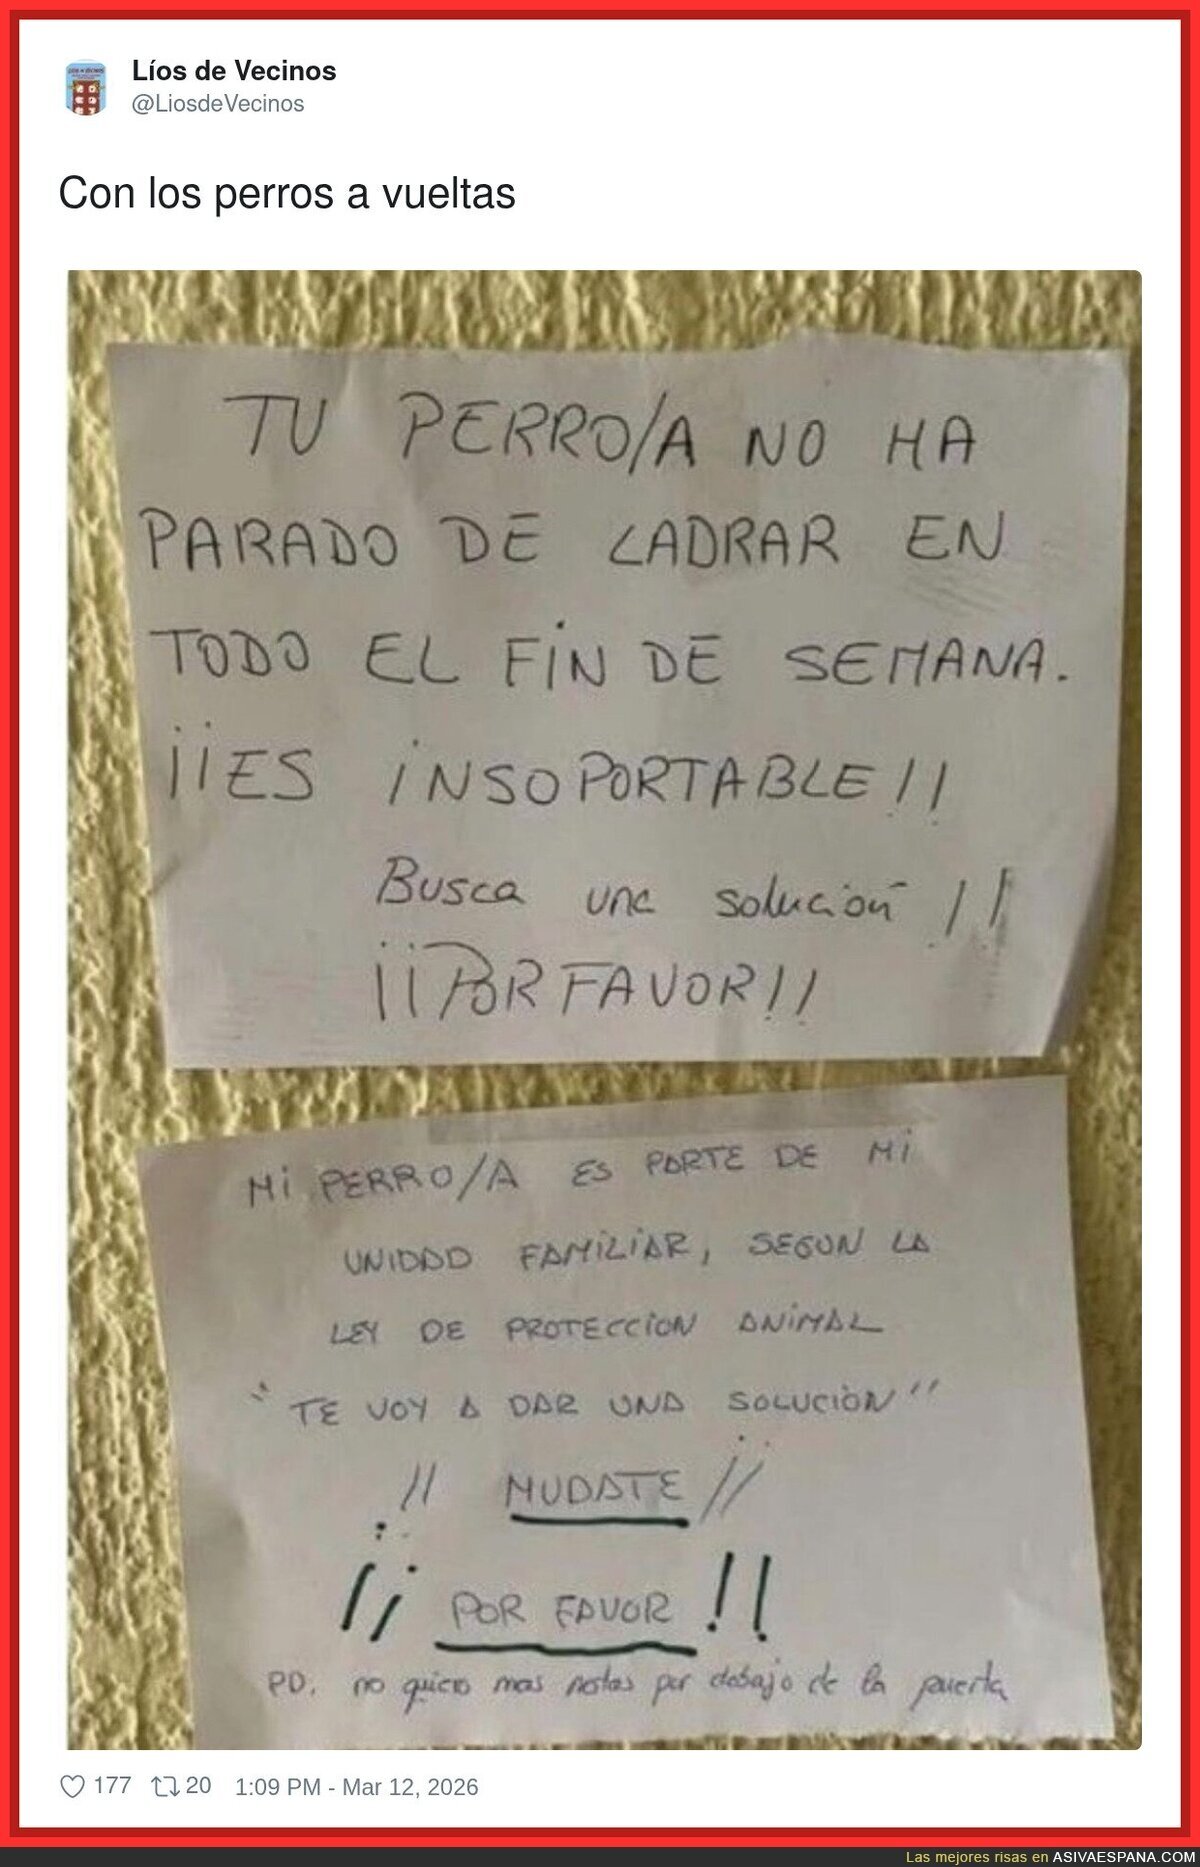 Líos de Vecinos
@LiosdeVecinos
Con los perros a vueltas
TU PERRO/A NO HA
PARADO DE LADRAR EN
TODO EL FIN DE SEMANA.
¡¡ES INSOPORTABLE!!
Busca una solución !!
¡¡POR FAVOR!!
MI PERRO/A ES PARTE DE MI
UNIDAD FAMILIAR, SEGUN LA
LEY DE PROTECCION ANIMAL
"TE VOY A DAR UNA SOLUCIÒN"
!! MUDATE ¡¡
¡¡ POR FAVOR !!
PD. no quiero mas notas por debajo de la puerta
177 20 1:09 PM - Mar 12, 2026
Las mejores risas en ASIVAESPANA.COM